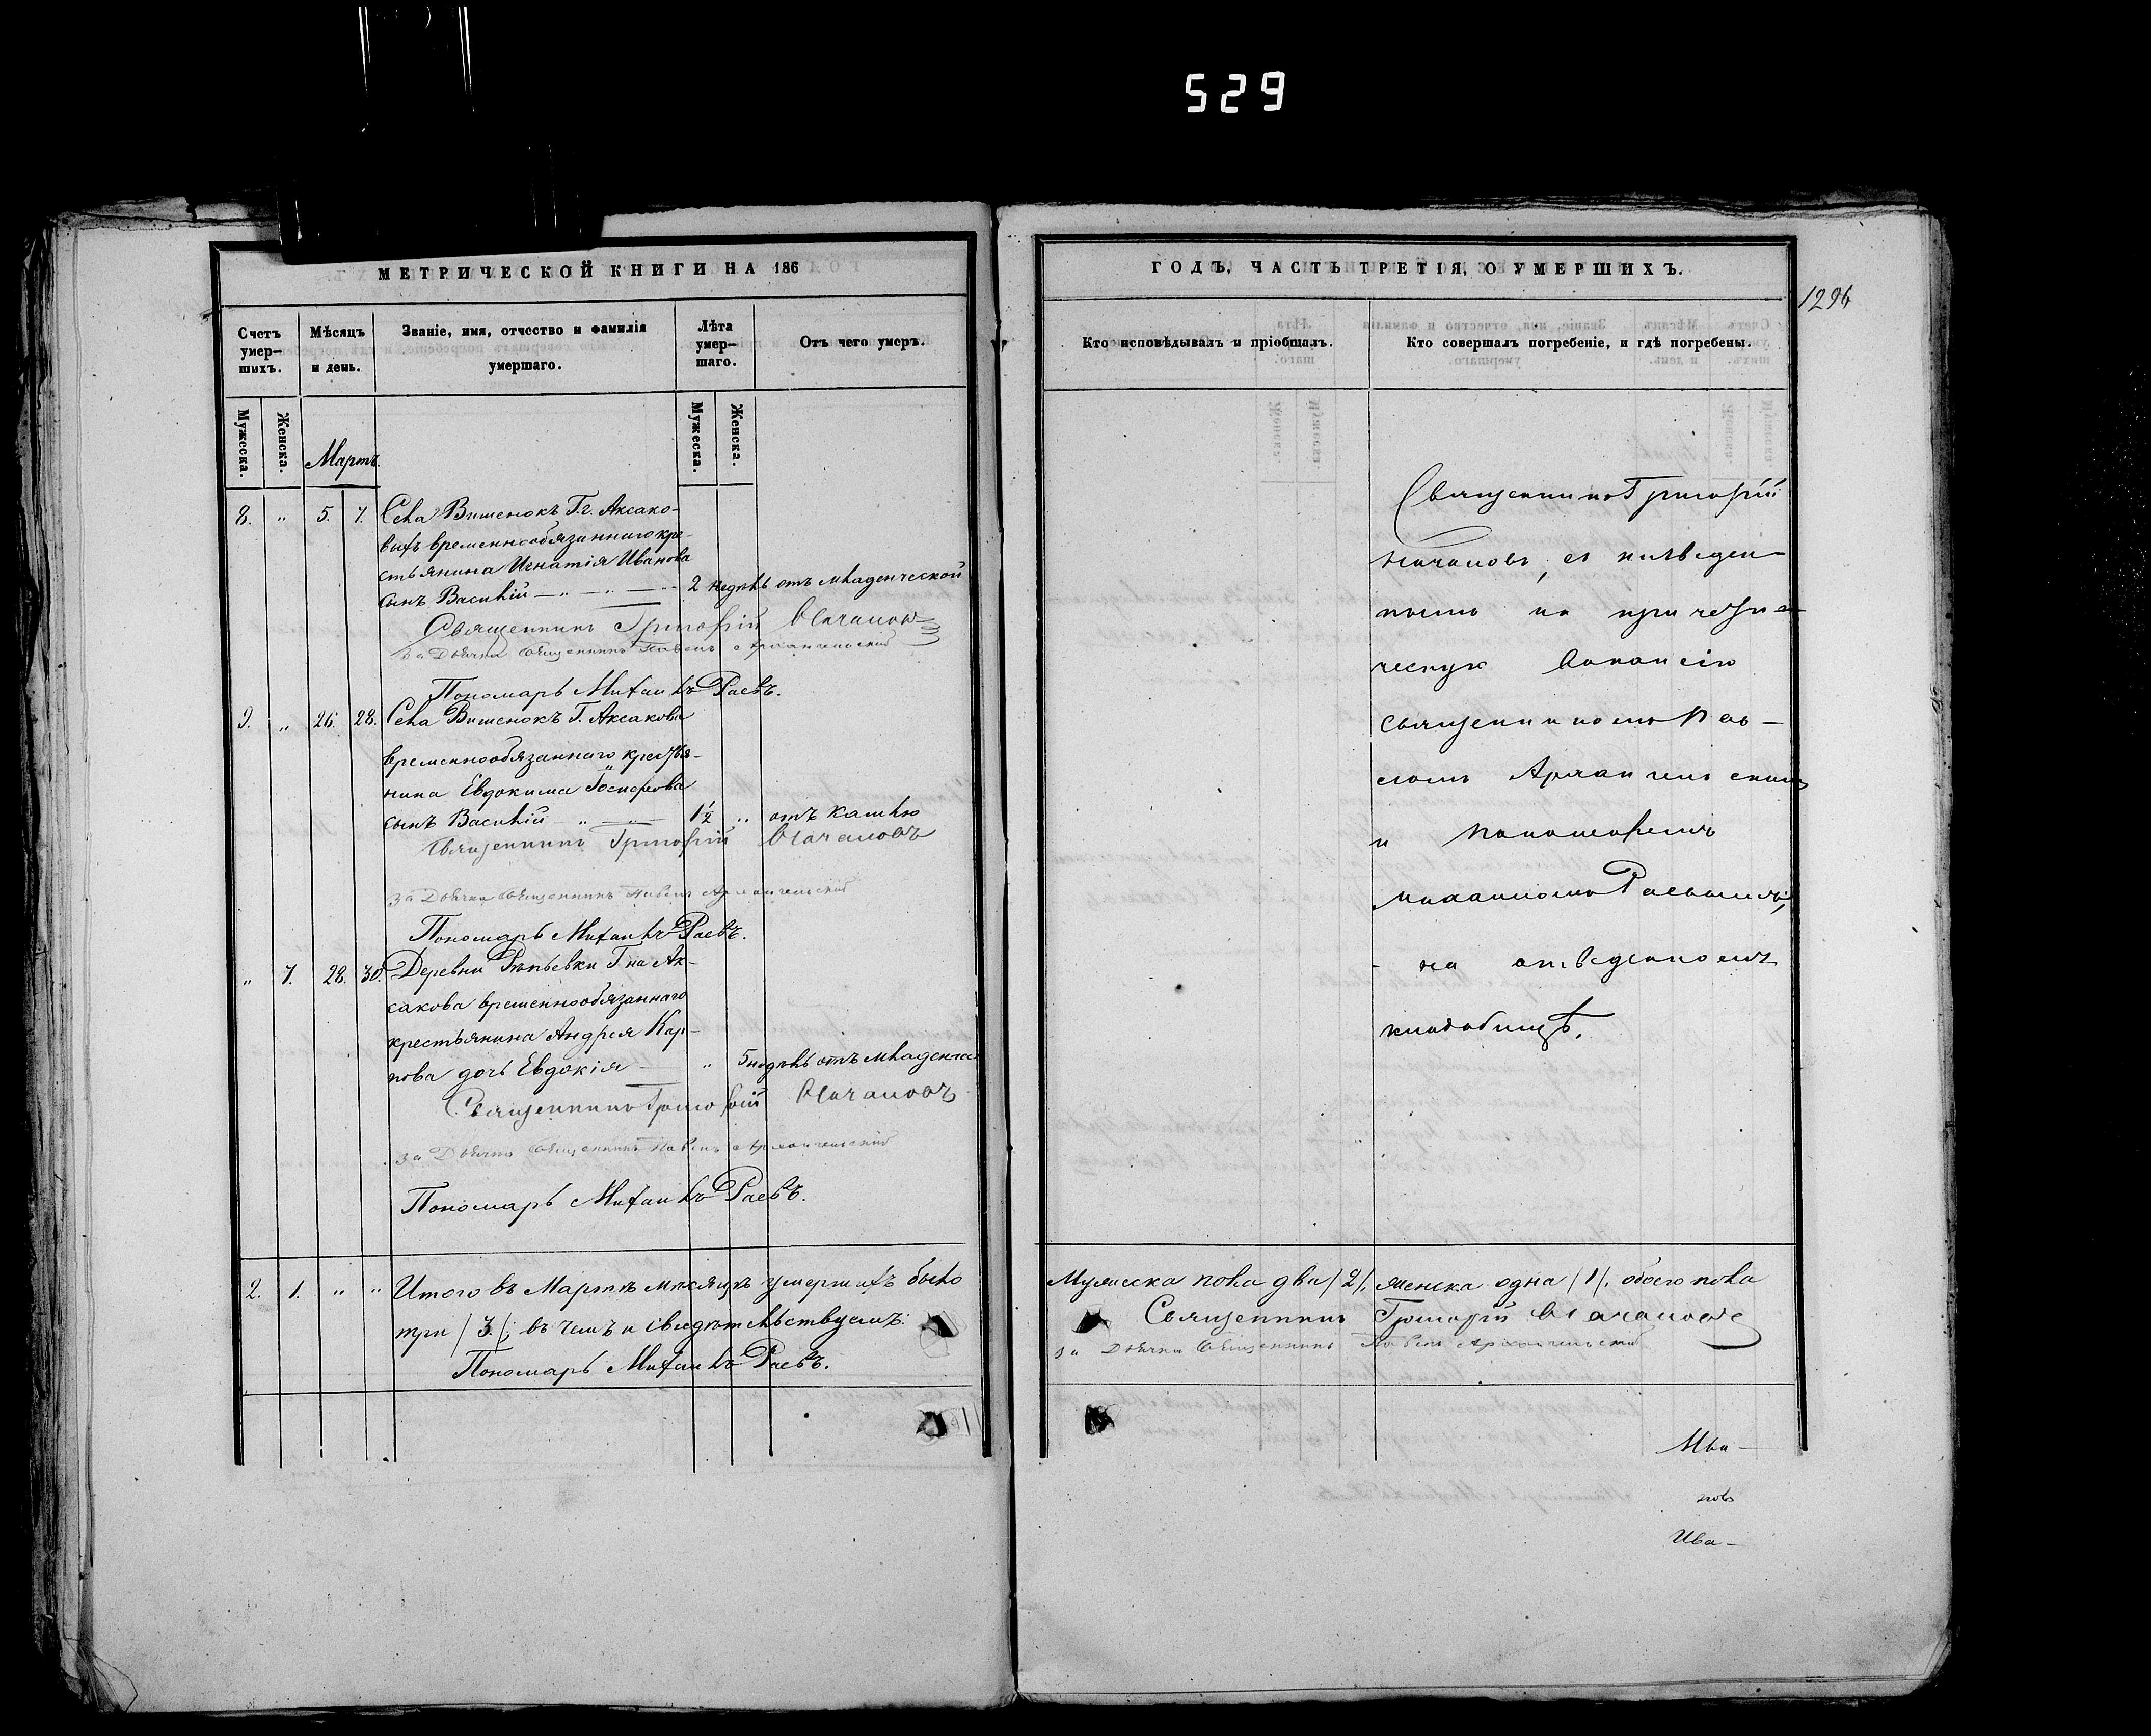 529
МЕТРИЧЕСКОЙ КНИГИ НА 186
Счетъ умер-шихъ.
Мѣсяцъ и день.
Званіе, имя, отчество и фамилія умершаго.
Лѣта умер-шаго.
Отъ чего умеръ.
Мужеска.
Женска.
Мартъ.
Мужеска.
Женска.
8. „ 5. 7. Села Вишенокъ Г.г. Аксако-
выхъ временнообязаннаго кре-
стьянина Игнатія Иванова
сынъ Василій — „ — „ — 2 недѣль отъ младенческой
Священникъ Григорій
за Дьячка Священникъ Павелъ Архангельскій
Пономарь Михаилъ Раевъ.
9. „ 26. 28. Села Вишенокъ Г. Аксакова
временнообязаннаго крестья-
нина Евдокима
сынъ Василій — „ — 1½ „ отъ кашлю
Священникъ Григорій
за Дьячка Священникъ Павелъ Архангельскій
Пономарь Михаилъ Раевъ.
„ 7. 28. 30. Деревни Репьевки Г-на Ак-
сакова временнообязаннаго
крестьянина Андрея Кар-
пова дочь Евдокія — „ 5 недѣль отъ младенчес
Священникъ Григорій
за Дьячка Священникъ Павелъ Архангельскій
Пономарь Михаилъ Раевъ.
2. 1. „ „ Итого въ Мартѣ мѣсяцѣ умершихъ было
три / 3 /; въ чемъ и свидѣтельствуемъ:
Пономарь Михаилъ Раевъ.
ГОДЪ, ЧАСТЬ ТРЕТІЯ, О УМЕРШИХЪ.
1294
Кто исповѣдывалъ и пріобщалъ.
Кто совершалъ погребеніе, и гдѣ погребены.
Священникъ Григорій
съ низведен-
нымъ на причетни-
ческую вакансію
священникомъ Пав-
ломъ Архангельскимъ
и пономаремъ
Михаиломъ Раевымъ,
- на отведенномъ
кладбищѣ.
Мужеска пола два / 2 /, женска одна / 1 /. обоего пола
Священникъ Григорій
за Дьячка Священникъ Павелъ Архангельскій
Ива-
новъ
Ива-